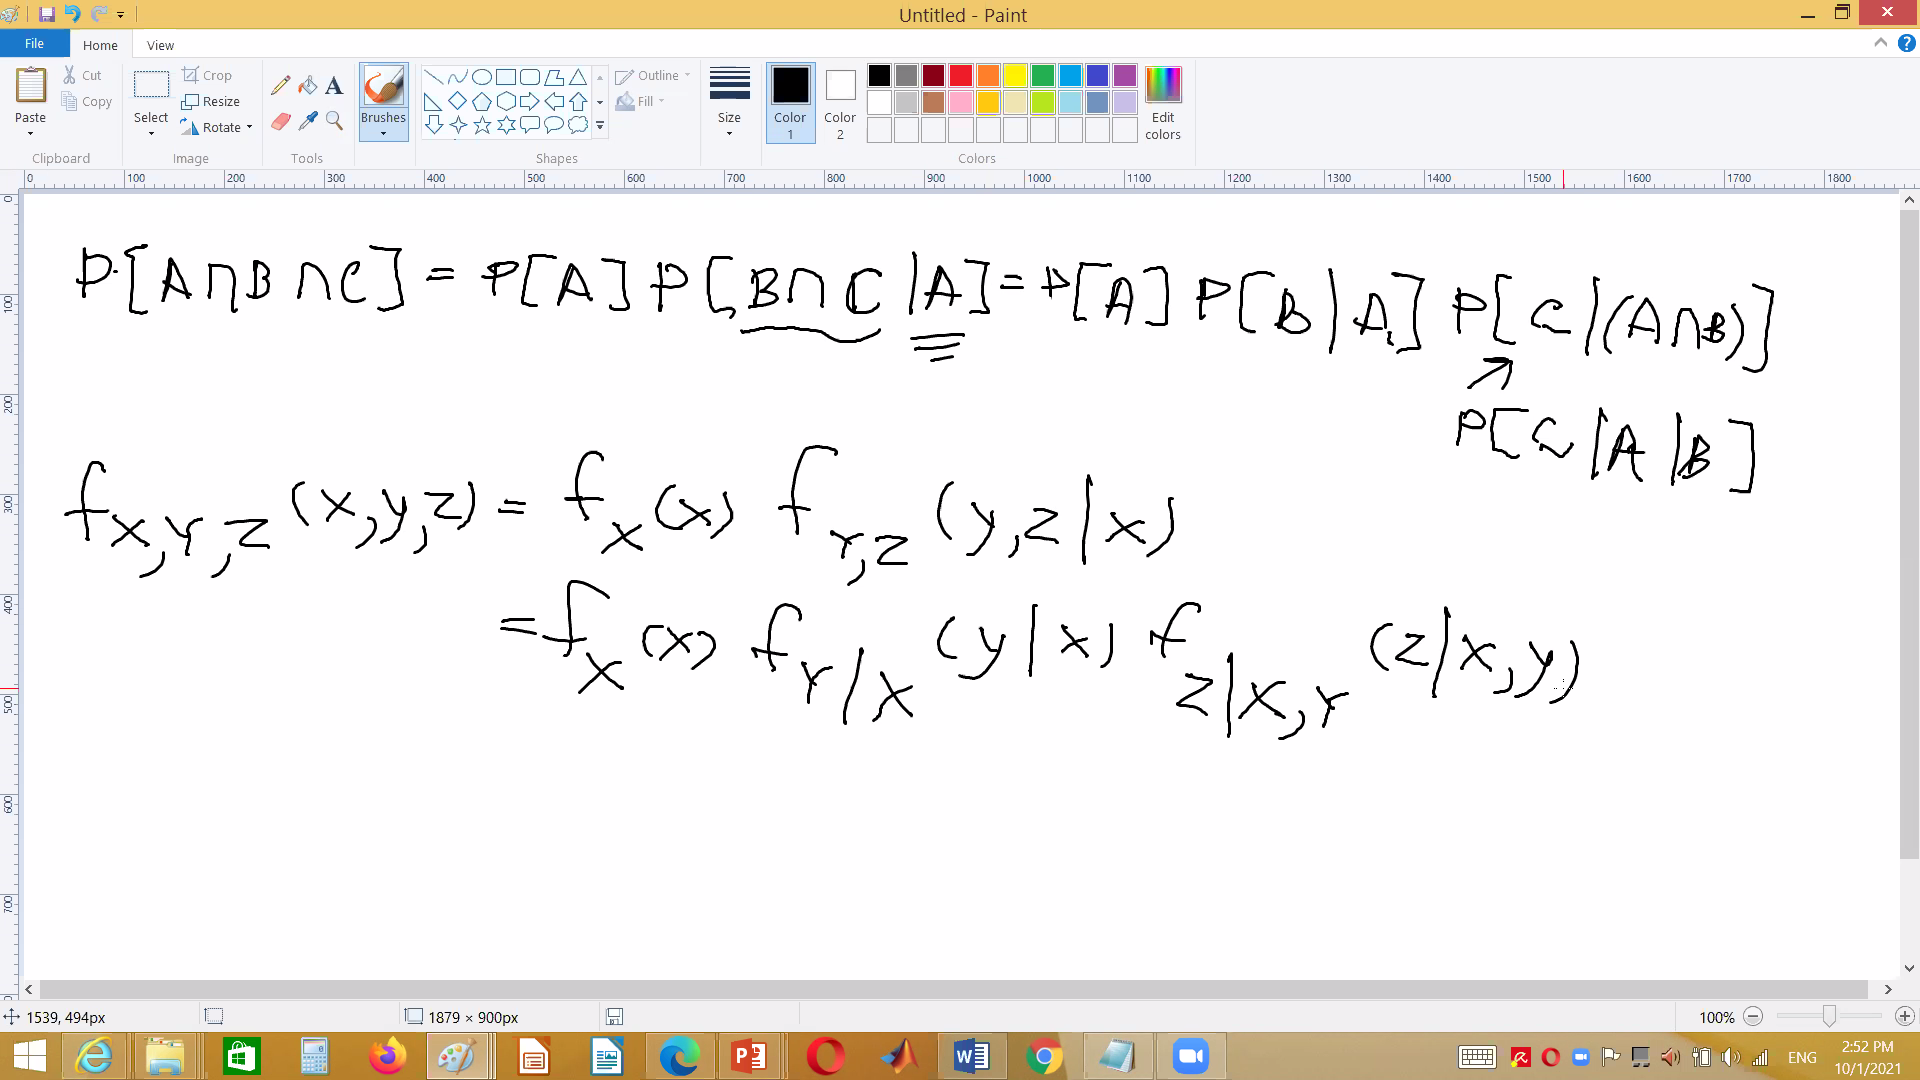 Untitled - Paint
File Home View
Paste Cut Copy Clipboard
Select Crop Resize Rotate Image
Tools
Brushes
Outline Fill Shapes
Size
Color 1 Color 2 Edit colors Colors
0 100 200 300 400 500 600 700 800 900 1000 1100 1200 1300 1400 1500 1600 1700 1800
0 100 200 300 400 500 600 700
P[A∩B∩C] = P[A] P[B∩C|A] = P[A] P[B|A] P[C|(A∩B)]
P[C|A|B]
f_{X,Y,Z}(x,y,z) = f_X(x) f_{Y,Z}(y,z|x)
= f_X(x) f_{Y|X}(y|x) f_{Z|X,Y}(z|x,y)
1539, 494px 1879 × 900px 100%
ENG 2:52 PM
10/1/2021